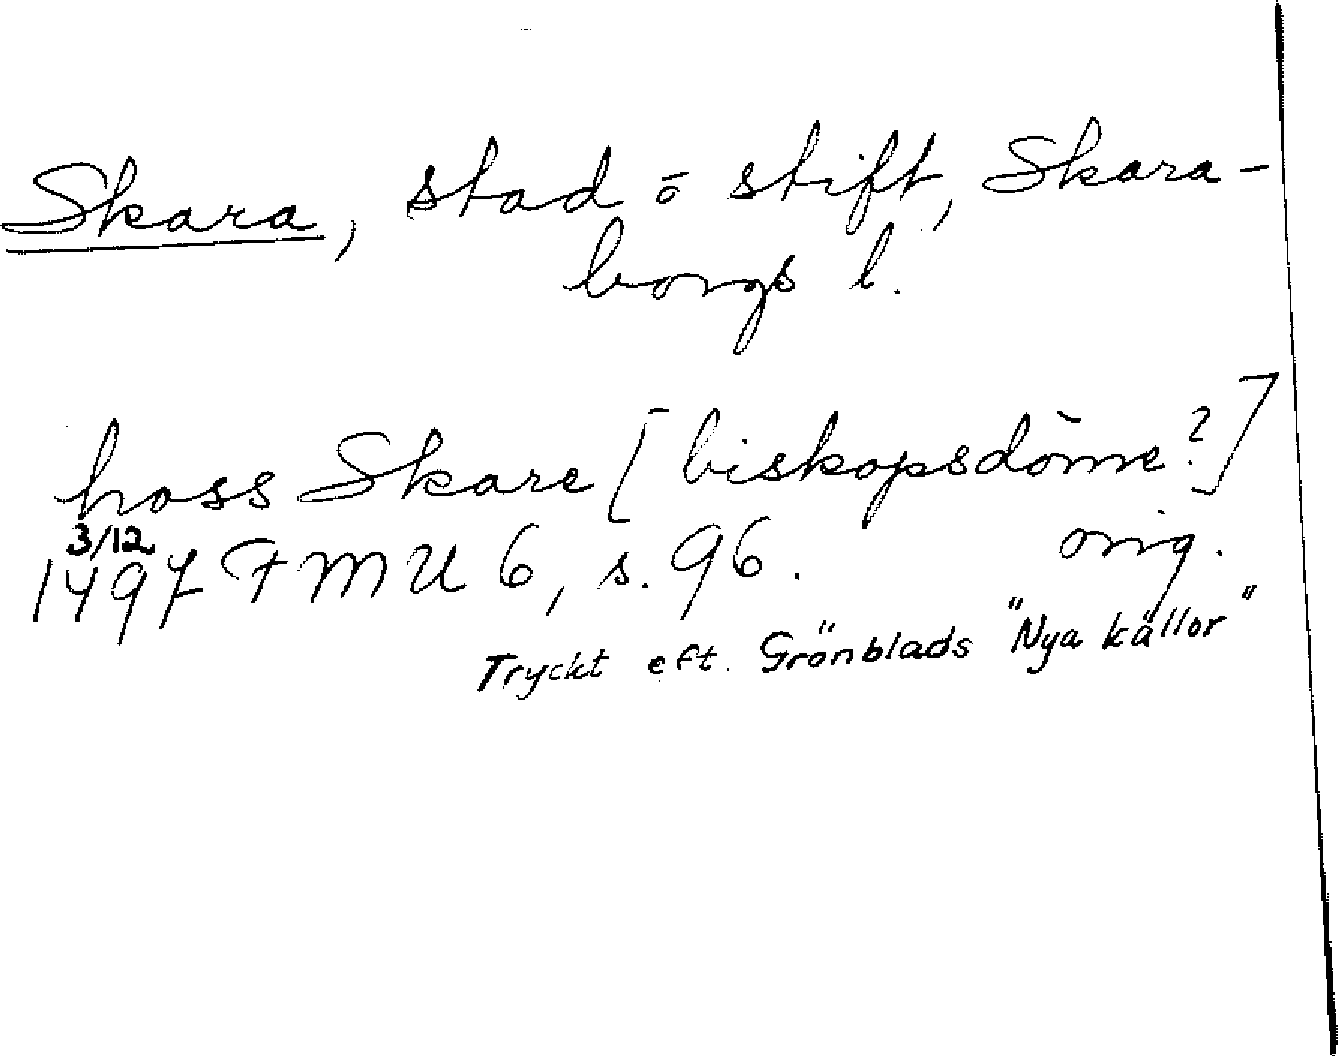 Skara, stad o stift, Skara-
borgs l.
hoss Skare [biskopsdöme?]
3/12
1497 FMU 6, s. 96. orig.
Tryckt eft. Grönblads "Nya källor"